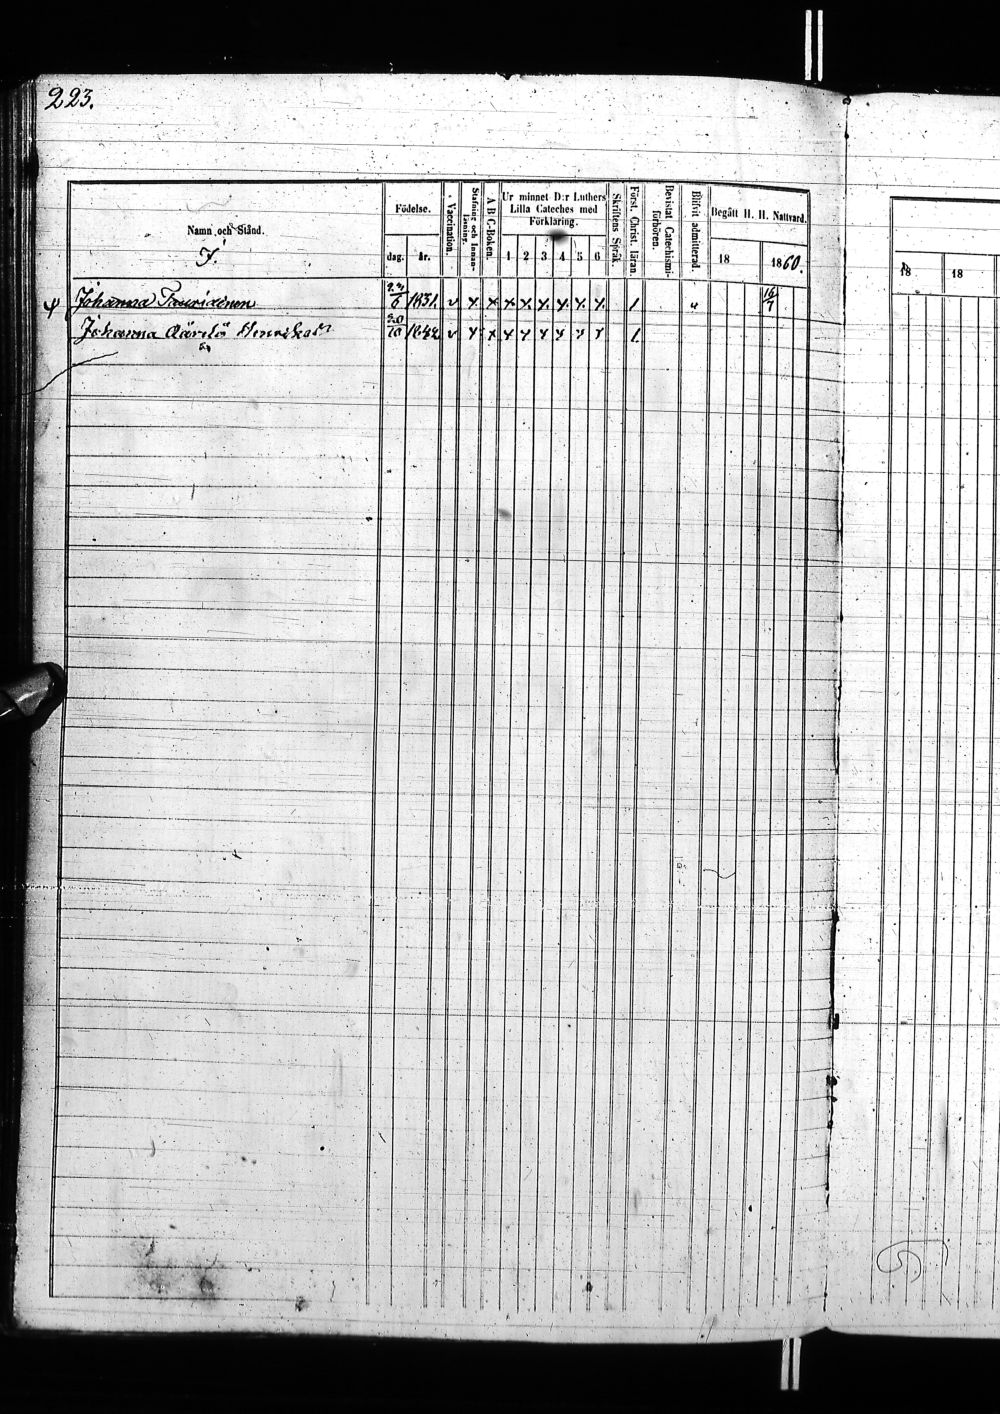 223.
Namn och Stånd.
J.
Födelse.
dag. år.
Vaccination.
Stafning och Innanläsning.
A B C-Boken.
Ur minnet D:r Luthers
Lilla Cateches med
Förklaring.
1 2 3 4 5 6
Skriftens Språk.
Först. Christ. läran.
Bevistat Catechismi-
förhören.
Blifvit admitterad.
Begått H. H. Nattvard.
18 1860.
18 18
Johanna 23/6 1831. v x x x x x x x x 1 16/7
Johanna 20/10 v x x x x x x x x 1